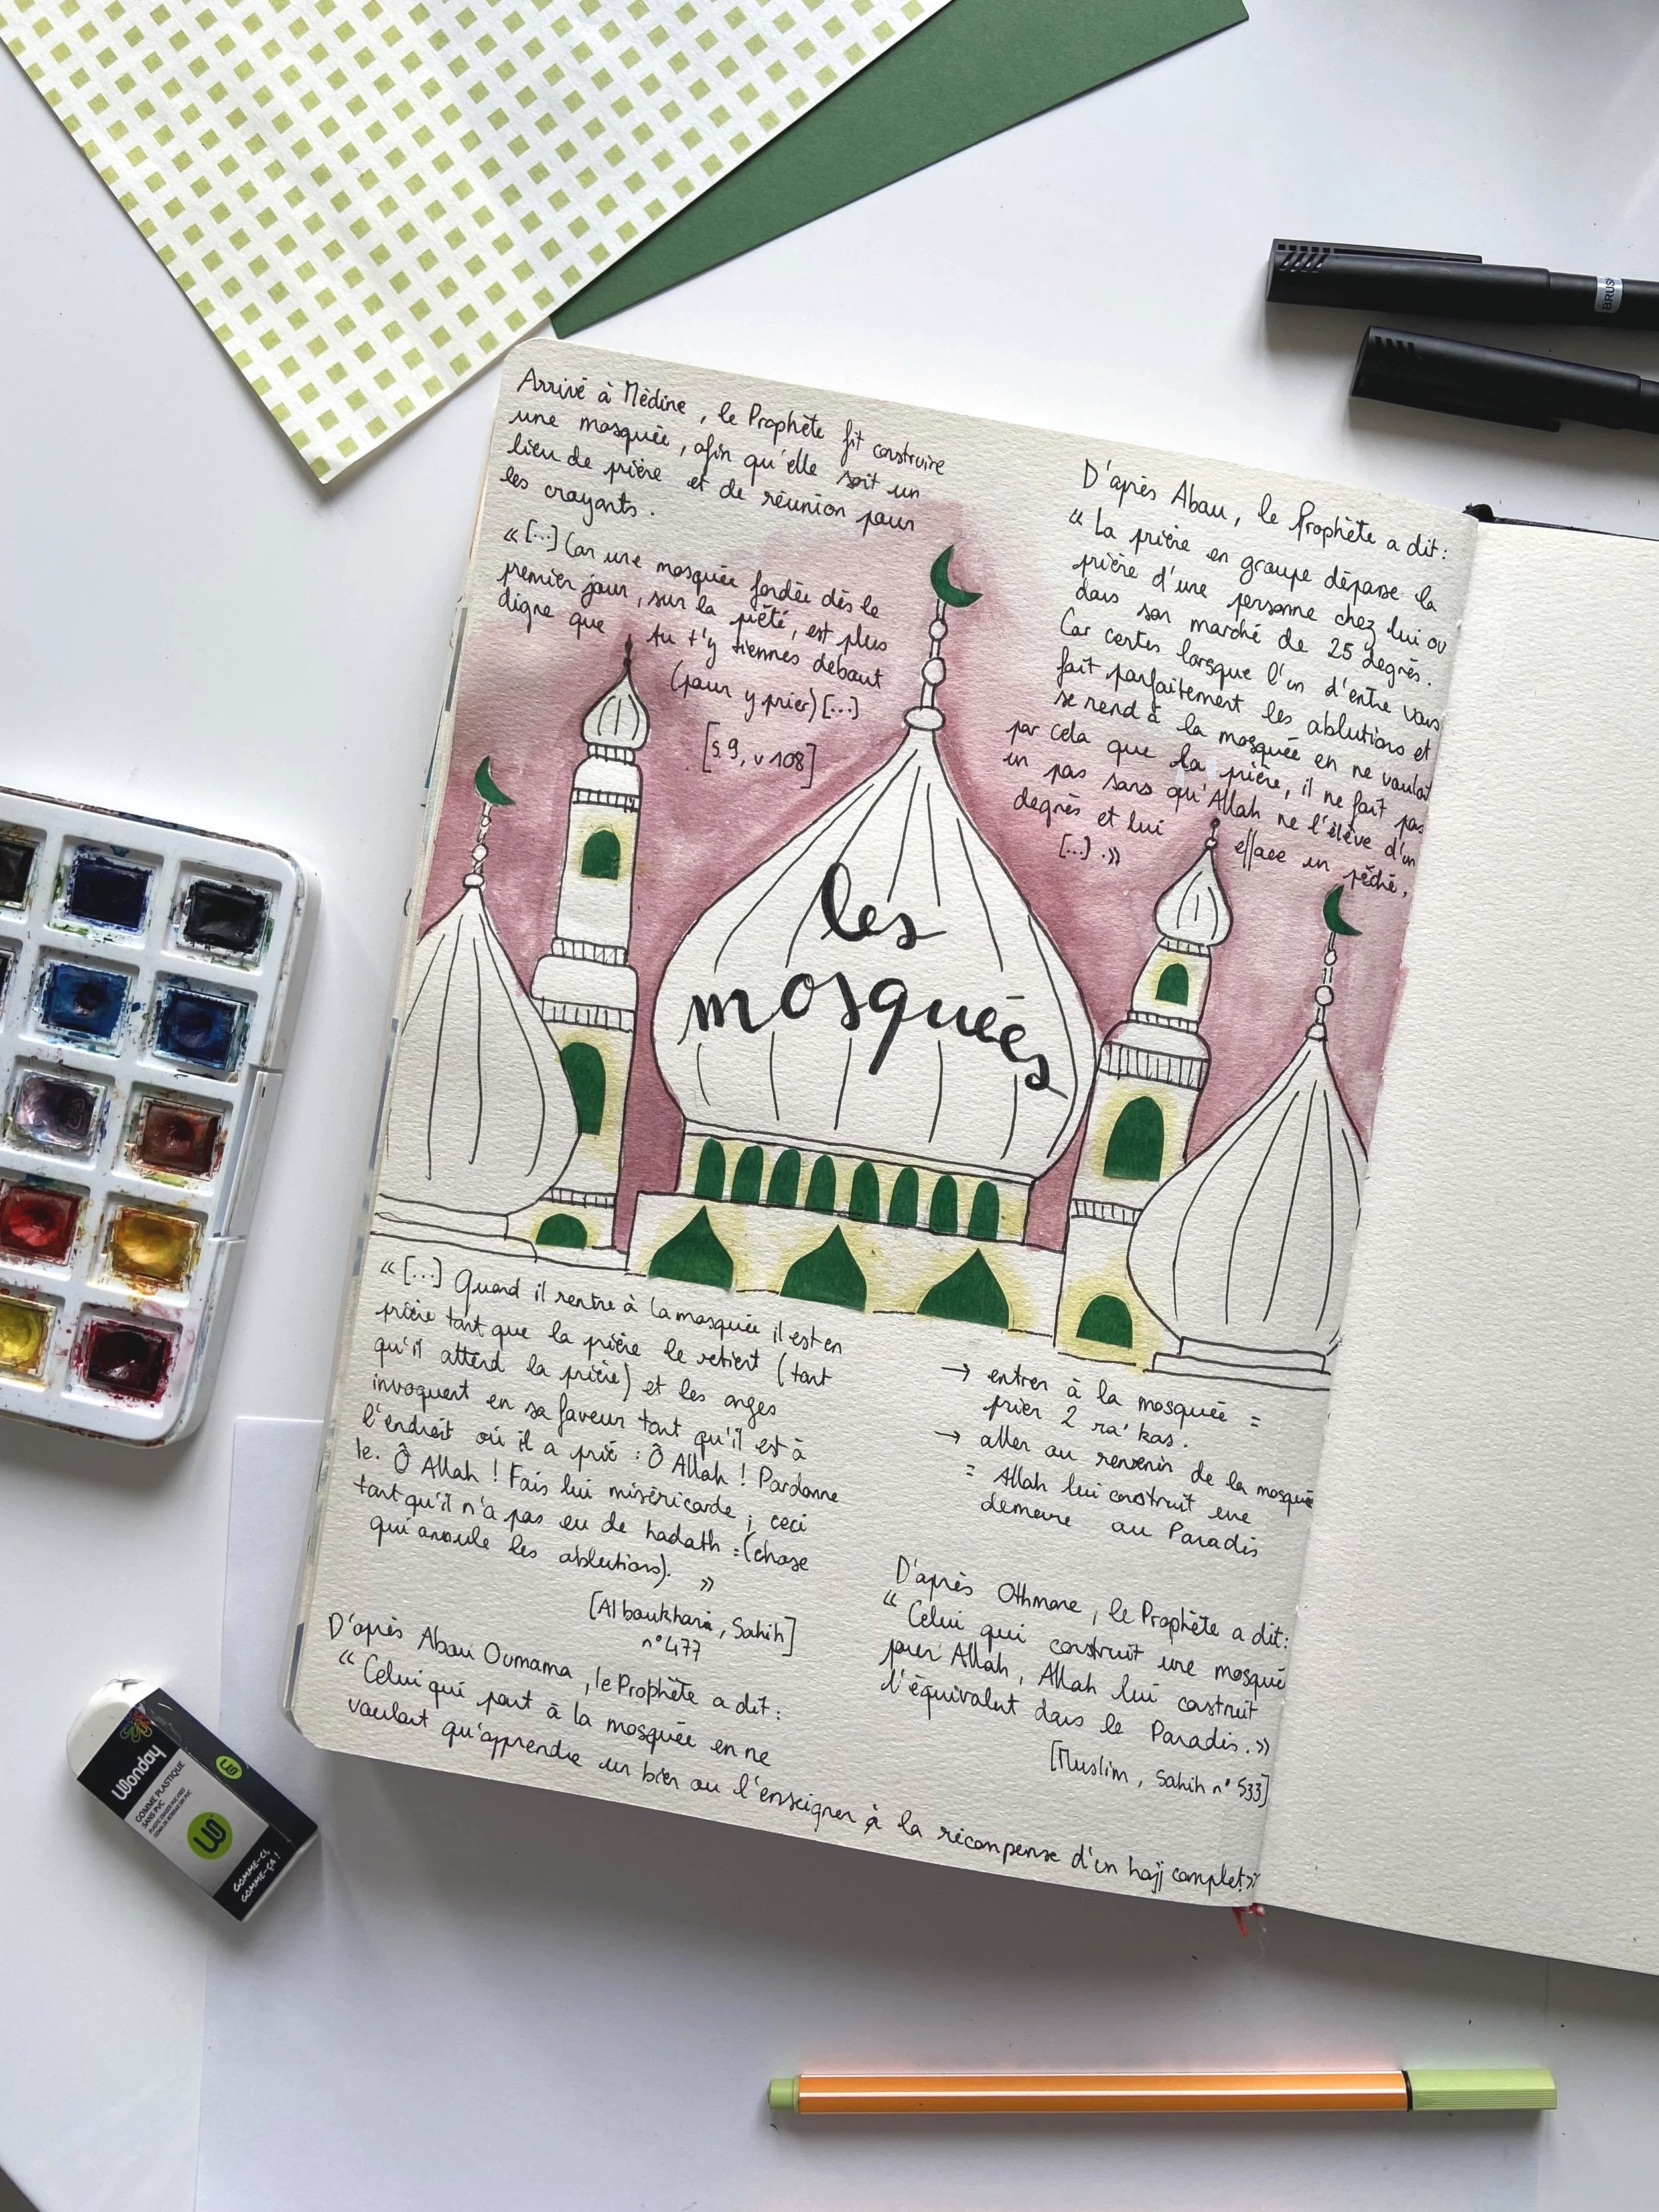 Arrivé à Médine, le Prophète fit construire
une mosquée, afin qu'elle soit un
lieu de prière et de réunion pour
les croyants.
« [...] Car une mosquée fondée dès le
premier jour, sur la piété, est plus
digne que tu t'y tiennes debout
(pour y prier) [...]
[s.9, v 108]
D'après Abou, le Prophète a dit:
« La prière en groupe dépasse la
prière d'une personne chez lui ou
dans son marché de 25 degrés.
Car certes lorsque l'un d'entre vous
fait parfaitement les ablutions et
se rend à la mosquée en ne voulant
par cela que la prière, il ne fait pas
un pas sans qu'Allah ne l'élève d'un
degrés et lui efface un péché,
[...] .»
les
mosquées
« [...] Quand il rentre à la mosquée il est en
prière tant que la prière le retient (tant
qu'il attend la prière) et les anges
invoquent en sa faveur tant qu'il est à
l'endroit où il a prié : Ô Allah ! Pardonne
le. Ô Allah ! Fais lui miséricorde ; ceci
tant qu'il n'a pas eu de hadath =(chose
qui annule les ablutions). »
[Al boukhari, Sahih]
n°477
→ entrer à la mosquée =
prier 2 ra'kas.
→ aller ou revenir de la mosquée
= Allah lui construit une
demeure au Paradis
D'après Othmane, le Prophète a dit:
« Celui qui construit une mosquée
pour Allah, Allah lui construit
l'équivalent dans le Paradis.»
[Muslim, Sahih n° 533]
D'après Abou Oumama, le Prophète a dit:
« Celui qui part à la mosquée en ne
voulant qu'apprendre un bien ou l'enseigner à la récompense d'un hajj complet.»
BRUS
Wonday
GOMME PLASTIQUE
SANS PVC
GOMME-CI,
GOMME-ÇA !